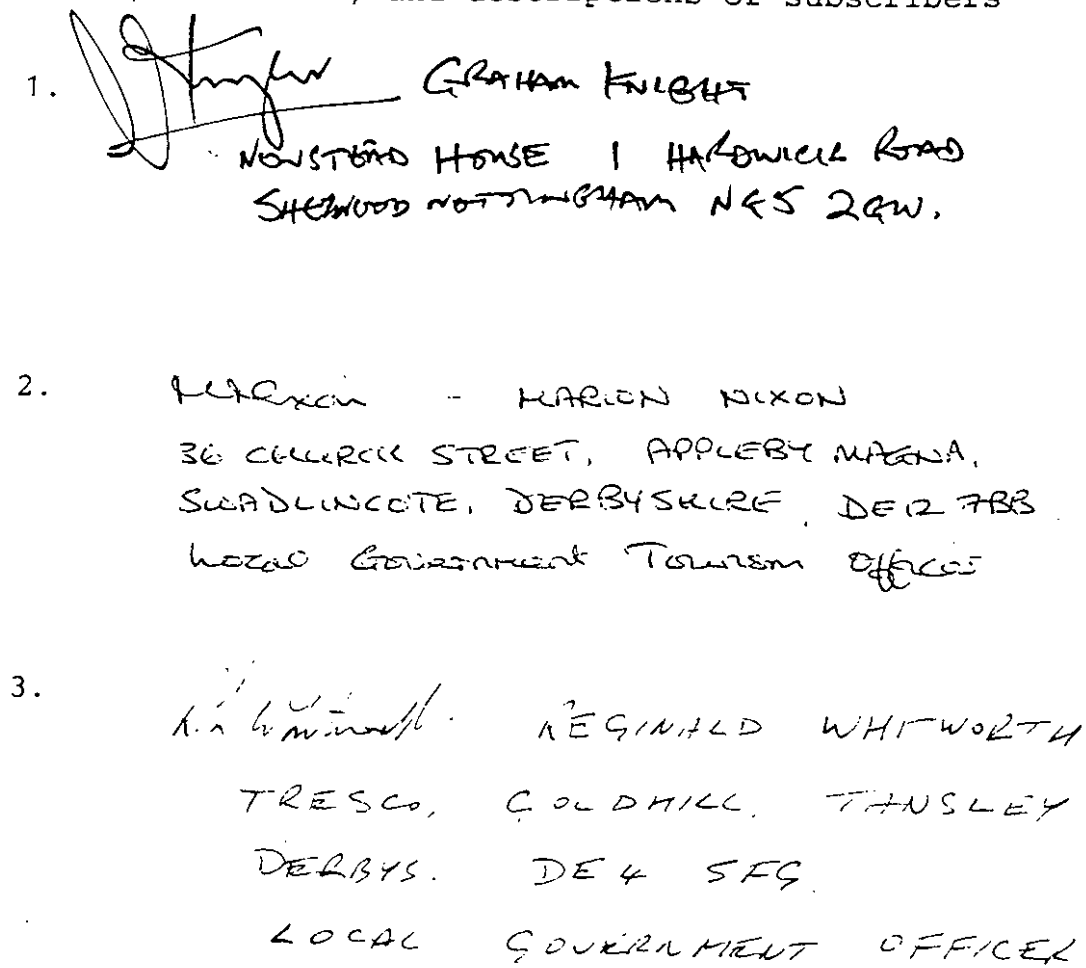 and descriptions of subscribers
1. GRAHAM KNIGHT
NEWSTEAD HOUSE 1 HARDWICK ROAD
SHERWOOD NOTTINGHAM NG5 2GW.
2. MNixon - MARION NIXON
36 CHURCH STREET, APPLEBY MAGNA,
SWADLINCOTE, DERBYSHIRE, DE12 7BB
Local Government Tourism Officer
3. REGINALD WHITWORTH
TRESCO, GOLDHILL, TANSLEY
DERBYS. DE4 5FG
LOCAL GOVERNMENT OFFICER